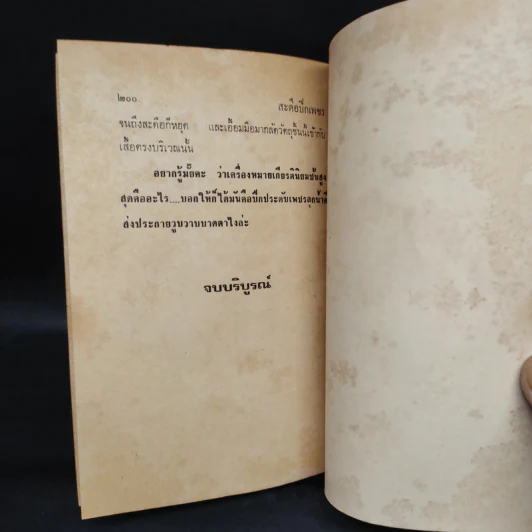 ๒๐๐
สะดือปึกเพชร
จนถึงสะดือก็หยุด และเอื้อมมือมากลัดวัตถุชิ้นนี้เข้ากับ
เสื้อตรงบริเวณนั้น
อยากรู้มั้ยคะ ว่าเครื่องหมายเกียรตินิยมชั้นสูง
สุดคืออะไร....บอกให้ก็ได้มันคือปึกประดับเพชรลูกน้ำดี
ส่งประกายวูบวาบบาดตาไงล่ะ
จบบริบูรณ์